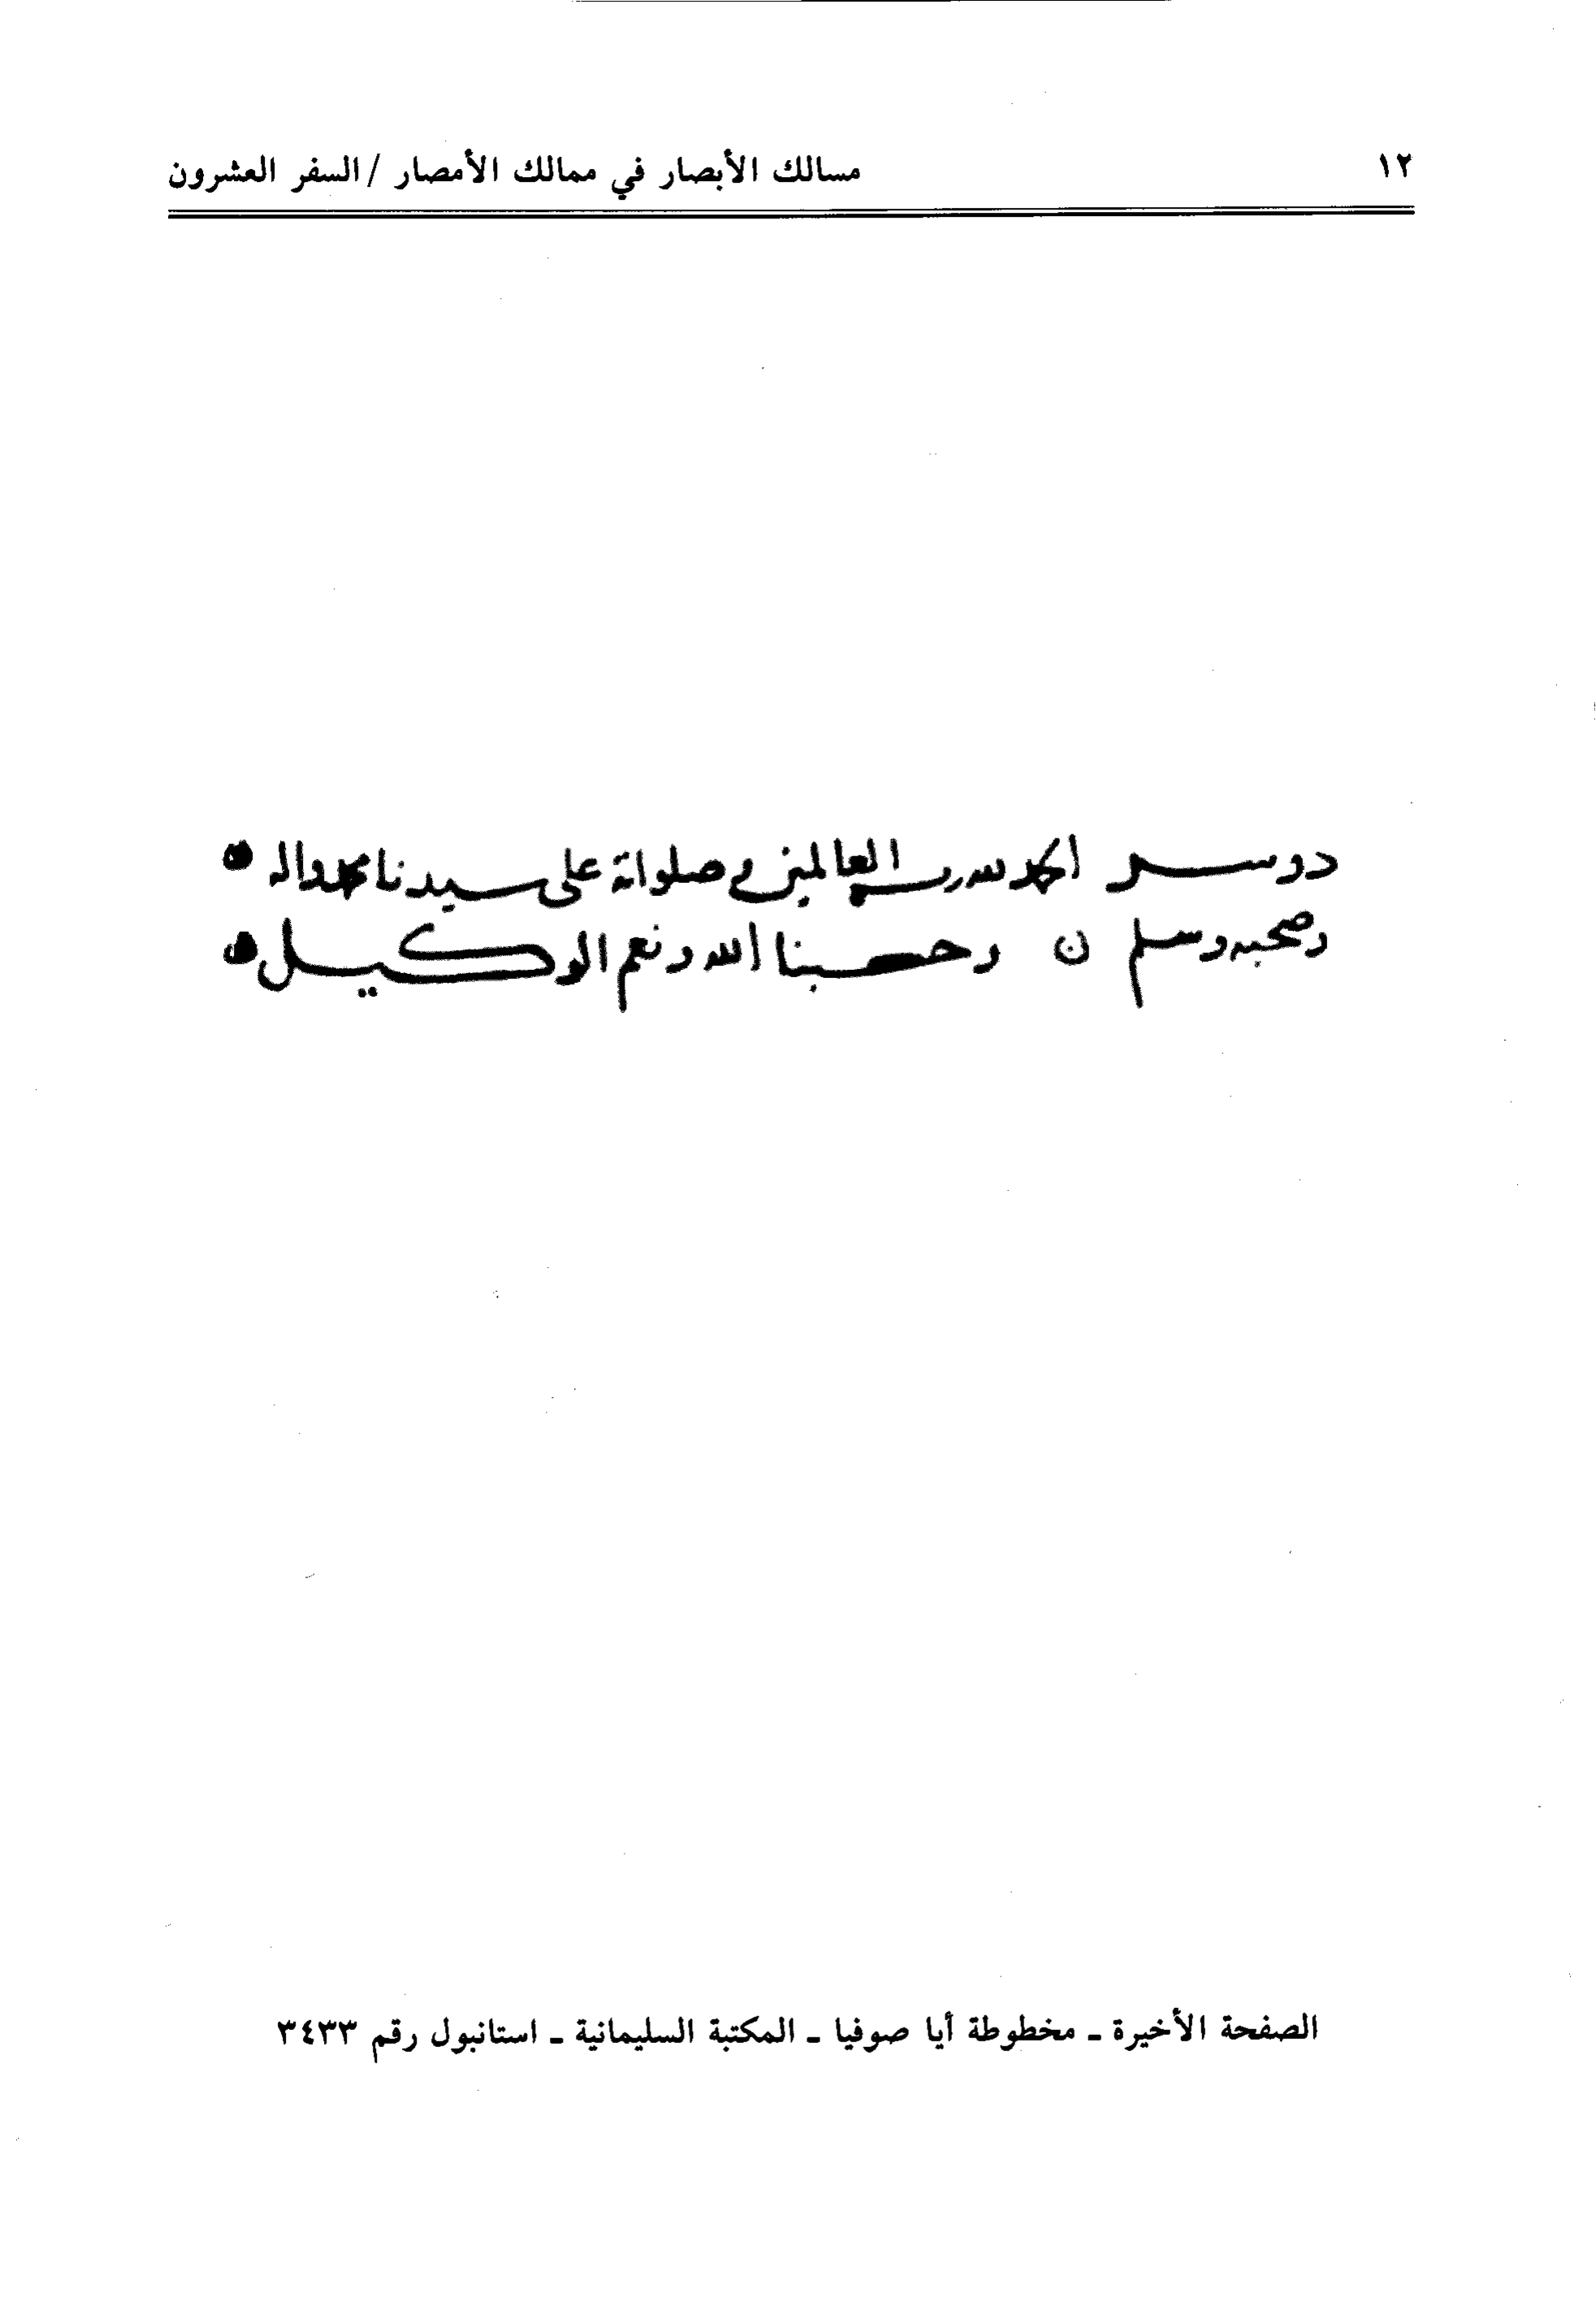 ١٢
مسالك الأبصار في ممالك الأمصار / السفر العشرون
الحمد لله رب العالمين وصلواته على سيدنا محمد واله
وصحبه وسلم ن وحسبنا الله ونعم الوكيل
الصفحة الأخيرة - مخطوطة أيا صوفيا - المكتبة السليمانية - استانبول رقم ٣٤٣٣